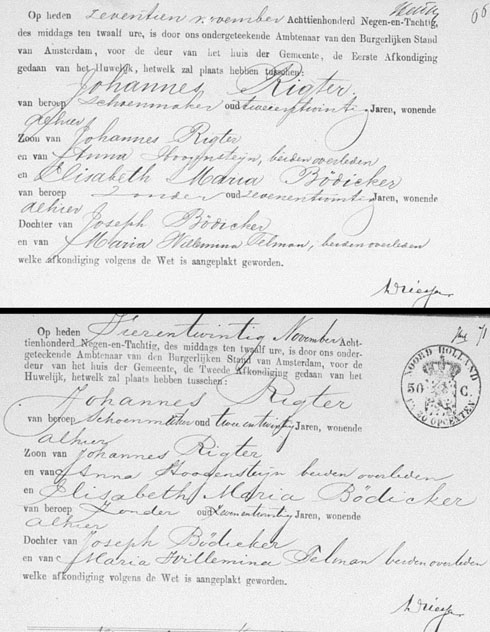 Op heden zeventien november Achttienhonderd Negen-en-Tachtig,
des middags ten twaalf ure, is door ons ondergeteekende Ambtenaar van den Burgerlijken Stand
van Amsterdam, voor de deur van het huis der Gemeente, de Eerste Afkondiging
gedaan van het Huwelijk, hetwelk zal plaats hebben tusschen:
Johannes Rigter
van beroep Schoenmaker oud tweeentwintig Jaren, wonende
alhier
Zoon van Johannes Rigter
en van Anna Hoogensteijn, beiden overleden
en Elisabeth Maria Bödicker
van beroep Zonder oud zevenentwintig Jaren, wonende
alhier
Dochter van Joseph Bödicker
en van Maria Willemina Telman, beiden overleden
welke afkondiging volgens de Wet is aangeplakt geworden.
Op heden Vierentwintig November Acht-
tienhonderd Negen-en-Tachtig, des middags ten twaalf ure, is door ons onder-
geteekende Ambtenaar van den Burgerlijken Stand van Amsterdam, voor de
deur van het huis der Gemeente, de Tweede Afkondiging gedaan van het
Huwelijk, hetwelk zal plaats hebben tusschen:
NOORD HOLLAND
50 C.
EN 30 OPCENTEN
Johannes Rigter
van beroep Schoenmaker oud tweeentwintig Jaren, wonende
alhier
Zoon van Johannes Rigter
en van Anna Hoogensteijn beiden overleden
en Elisabeth Maria Bödicker
van beroep Zonder oud Zevenentwintig Jaren, wonende
alhier
Dochter van Joseph Bödicker
en van Maria Willemina Telman beiden overleden
welke afkondiging volgens de Wet is aangeplakt geworden.